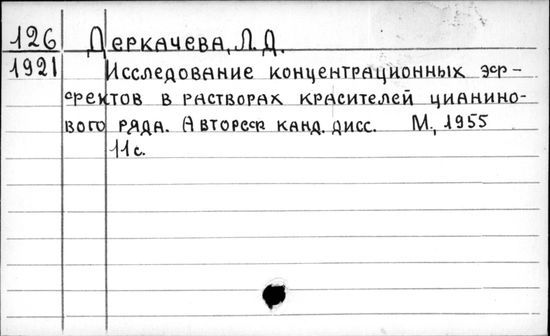 126 Деркачева, Л.Д.
1921 Исследование концентрационных эф-
фектов в растворах красителей цианино-
вого ряда. Автореф канд. дисс. М., 1955
11с.